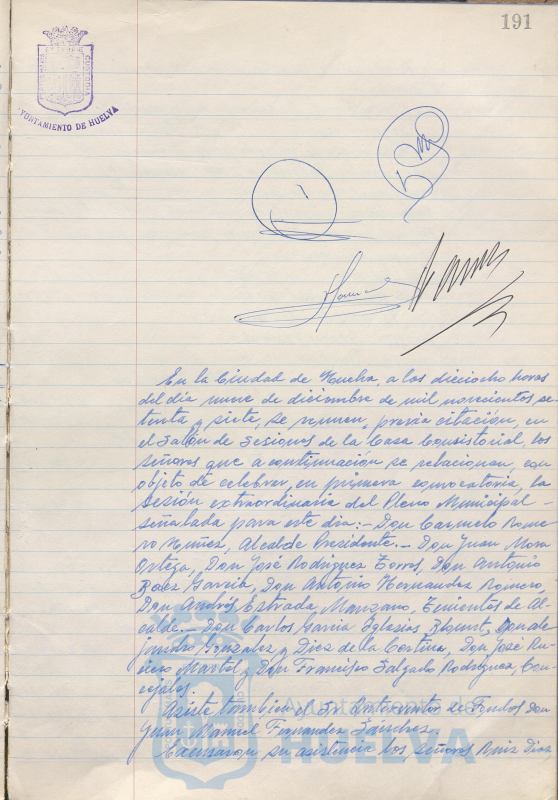 191
AYUNTAMIENTO DE HUELVA
En la Ciudad de Huelva, a las dieciocho horas
del día nueve de diciembre de mil novecientos se-
tenta y siete, se reunen, previa citación, en
el Salón de Sesiones de la Casa Consistorial, los
señores que a continuación se relacionan, con
objeto de celebrar, en primera convocatoria, la
sesión extraordinaria del Pleno Municipal
señalada para este día:- Don Carmelo Rome-
ro Núñez, Alcalde Presidente.- Don Juan Mora
Ortega, Don José Rodríguez Torres, Don Antonio
Baez García, Don Antonio Hernandez Romero,
Don Andrés Estrada Manzano, Tenientes de Al-
calde.- Don Carlos García Iglesias Blount, Don Ale-
jandro Gonzalez y Diez de la Cortina, Don José
Martos y Don Francisco Salgado Rodríguez, Con-
cejales.
Asiste también el Sr. Interventor de Fondos Don
Juan Manuel Fernandez Sánchez.
Excusaron su asistencia los Señores Ruiz Diaz
Ayuntamiento de
HUELVA